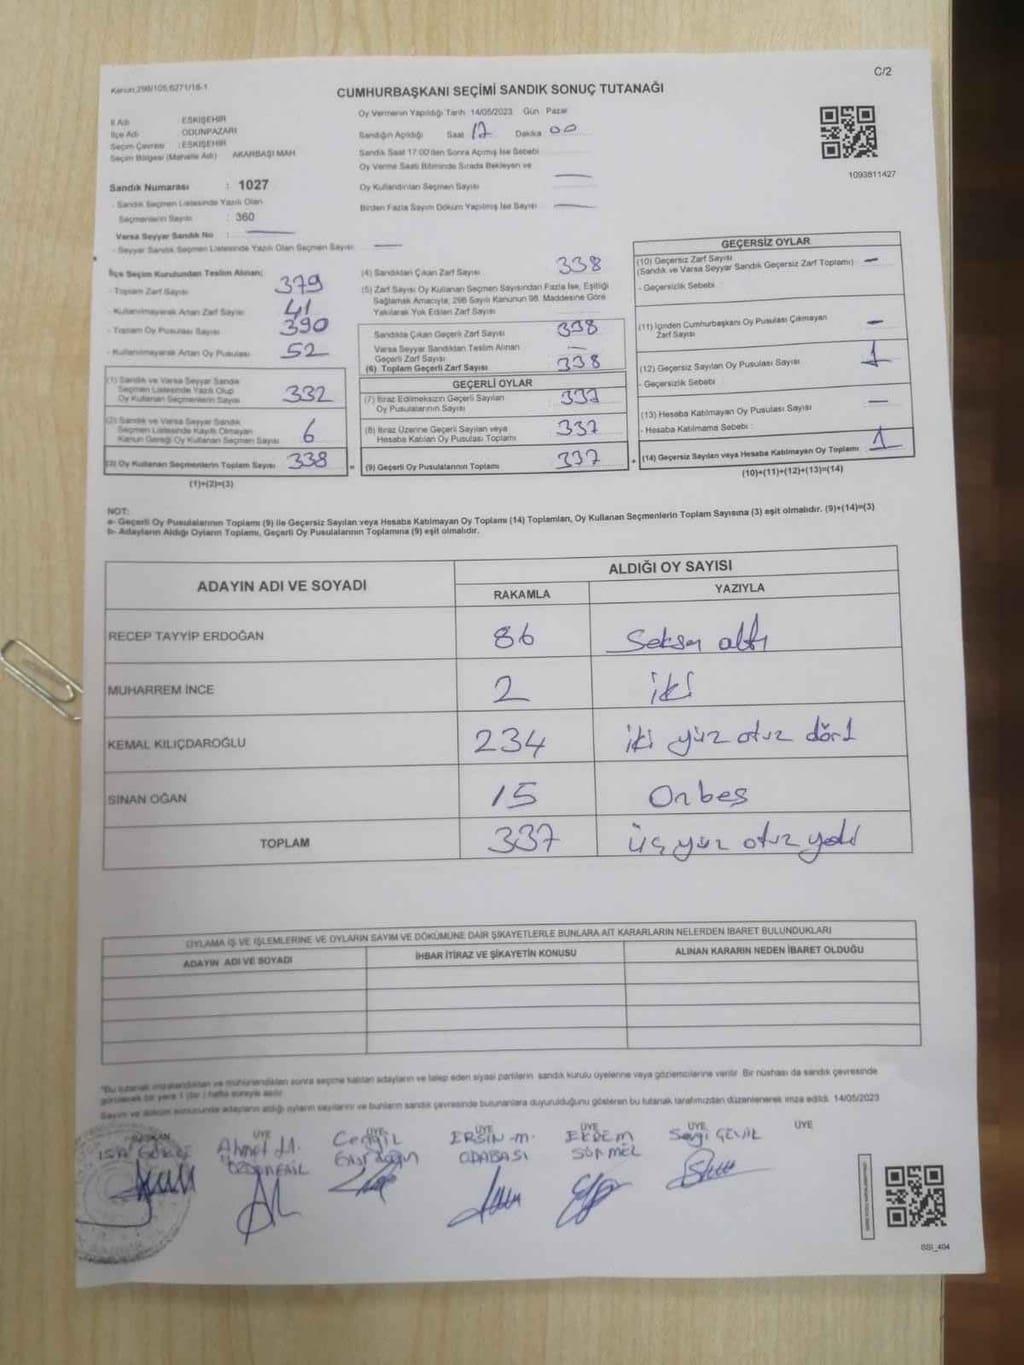 C/2
Kanun:298/105,6271/18-1
CUMHURBAŞKANI SEÇİMİ SANDIK SONUÇ TUTANAĞI
İl Adı ESKİŞEHİR
İlçe Adı ODUNPAZARI
Seçim Çevresi : ESKİŞEHİR
Seçim Bölgesi (Mahalle Adı) AKARBAŞI MAH.
Sandık Numarası : 1027
- Sandık Seçmen Listesinde Yazılı Olan
Seçmenlerin Sayısı : 360
Varsa Seyyar Sandık No :
- Seyyar Sandık Seçmen Listesinde Yazılı Olan Seçmen Sayısı
Oy Vermenin Yapıldığı Tarih 14/05/2023 Gün Pazar
Sandığın Açıldığı Saat 17 Dakika 00
Sandık Saat 17:00'den Sonra Açılmış İse Sebebi
Oy Verme Saati Bitiminde Sırada Bekleyen ve
Oy Kullandırılan Seçmen Sayısı
Birden Fazla Sayım Döküm Yapılmış İse Sayısı
1093811427
İlçe Seçim Kurulundan Teslim Alınan;
- Toplam Zarf Sayısı 379
- Kullanılmayarak Artan Zarf Sayısı 41
- Toplam Oy Pusulası Sayısı 390
- Kullanılmayarak Artan Oy Pusulası 52
(1) Sandık ve Varsa Seyyar Sandık
Seçmen Listesinde Yazılı Olup
Oy Kullanan Seçmenlerin Sayısı 332
(2) Sandık ve Varsa Seyyar Sandık
Seçmen Listesinde Kayıtlı Olmayan
Kanun Gereği Oy Kullanan Seçmen Sayısı 6
(3) Oy Kullanan Seçmenlerin Toplam Sayısı 338
(1)+(2)=(3)
(4) Sandıktan Çıkan Zarf Sayısı 338
(5) Zarf Sayısı Oy Kullanan Seçmen Sayısından Fazla İse, Eşitliği
Sağlamak Amacıyla, 298 Sayılı Kanunun 98. Maddesine Göre
Yakılarak Yok Edilen Zarf Sayısı
Sandıkta Çıkan Geçerli Zarf Sayısı 338
Varsa Seyyar Sandıktan Teslim Alınan
Geçerli Zarf Sayısı —
(6) Toplam Geçerli Zarf Sayısı 338
GEÇERLİ OYLAR
(7) İtiraz Edilmeksizin Geçerli Sayılan
Oy Pusulalarının Sayısı 337
(8) İtiraz Üzerine Geçerli Sayılan veya
Hesaba Katılan Oy Pusulası Toplamı 337
(9) Geçerli Oy Pusulalarının Toplamı 337
GEÇERSİZ OYLAR
(10) Geçersiz Zarf Sayısı —
(Sandık ve Varsa Seyyar Sandık Geçersiz Zarf Toplamı)
- Geçersizlik Sebebi :
(11) İçinden Cumhurbaşkanı Oy Pusulası Çıkmayan
Zarf Sayısı —
(12) Geçersiz Sayılan Oy Pusulası Sayısı 1
- Geçersizlik Sebebi :
(13) Hesaba Katılmayan Oy Pusulası Sayısı —
- Hesaba Katılmama Sebebi :
(14) Geçersiz Sayılan veya Hesaba Katılmayan Oy Toplamı 1
(10)+(11)+(12)+(13)=(14)
NOT:
a- Geçerli Oy Pusulalarının Toplamı (9) ile Geçersiz Sayılan veya Hesaba Katılmayan Oy Toplamı (14) Toplamları, Oy Kullanan Seçmenlerin Toplam Sayısına (3) eşit olmalıdır. (9)+(14)=(3)
b- Adayların Aldığı Oyların Toplamı, Geçerli Oy Pusulalarının Toplamına (9) eşit olmalıdır.
ADAYIN ADI VE SOYADI
ALDIĞI OY SAYISI
RAKAMLA YAZIYLA
RECEP TAYYİP ERDOĞAN 86 Seksen altı
MUHARREM İNCE 2 iki
KEMAL KILIÇDAROĞLU 234 iki yüz otuz dört
SİNAN OĞAN 15 Onbeş
TOPLAM 337 üç yüz otuz yedi
OYLAMA İŞ VE İŞLEMLERİNE VE OYLARIN SAYIM VE DÖKÜMÜNE DAİR ŞİKAYETLERLE BUNLARA AİT KARARLARIN NELERDEN İBARET BULUNDUKLARI
ADAYIN ADI VE SOYADI İHBAR İTİRAZ VE ŞİKAYETİN KONUSU ALINAN KARARIN NEDEN İBARET OLDUĞU
"Bu tutanak imzalandıktan ve mühürlendikten sonra seçime katılan adayların ve talep eden siyasi partilerin sandık kurulu üyelerine veya gözlemcilerine verilir. Bir nüshası da sandık çevresinde
görülecek bir yere 1 (bir) hafta süreyle asılır.
Sayım ve döküm sonucunda adayların aldığı oyların sayılarını ve bunların sandık çevresinde bulunanlara duyurulduğunu gösteren bu tutanak tarafımızdan düzenlenerek imza edildi. 14/05/2023
BAŞKAN ÜYE ÜYE ÜYE ÜYE ÜYE ÜYE
Ahmet Cengiz ERSİN M. EKREM Sevgi ÇEVİK
ODABAŞI SÖNMEZ
SSI_404